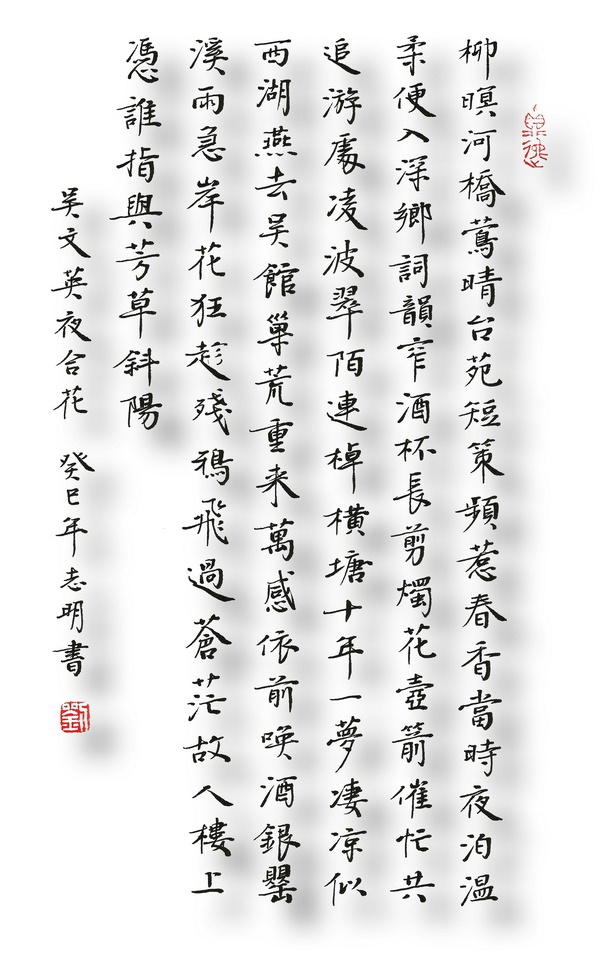 柳暝河橋鶯晴台苑短策頻惹春香當時夜泊温
柔便入深鄉詞韻窄酒杯長剪燭花壺箭催忙共
追游處凌波翠陌連棹橫塘十年一夢凄凉似
西湖燕去吴館巢荒重来萬感依前唤酒銀罌
溪雨急岸花狂趁殘鴉飛過蒼茫故人樓上
憑誰指與芳草斜陽
吴文英夜合花 癸巳年志明書
劉